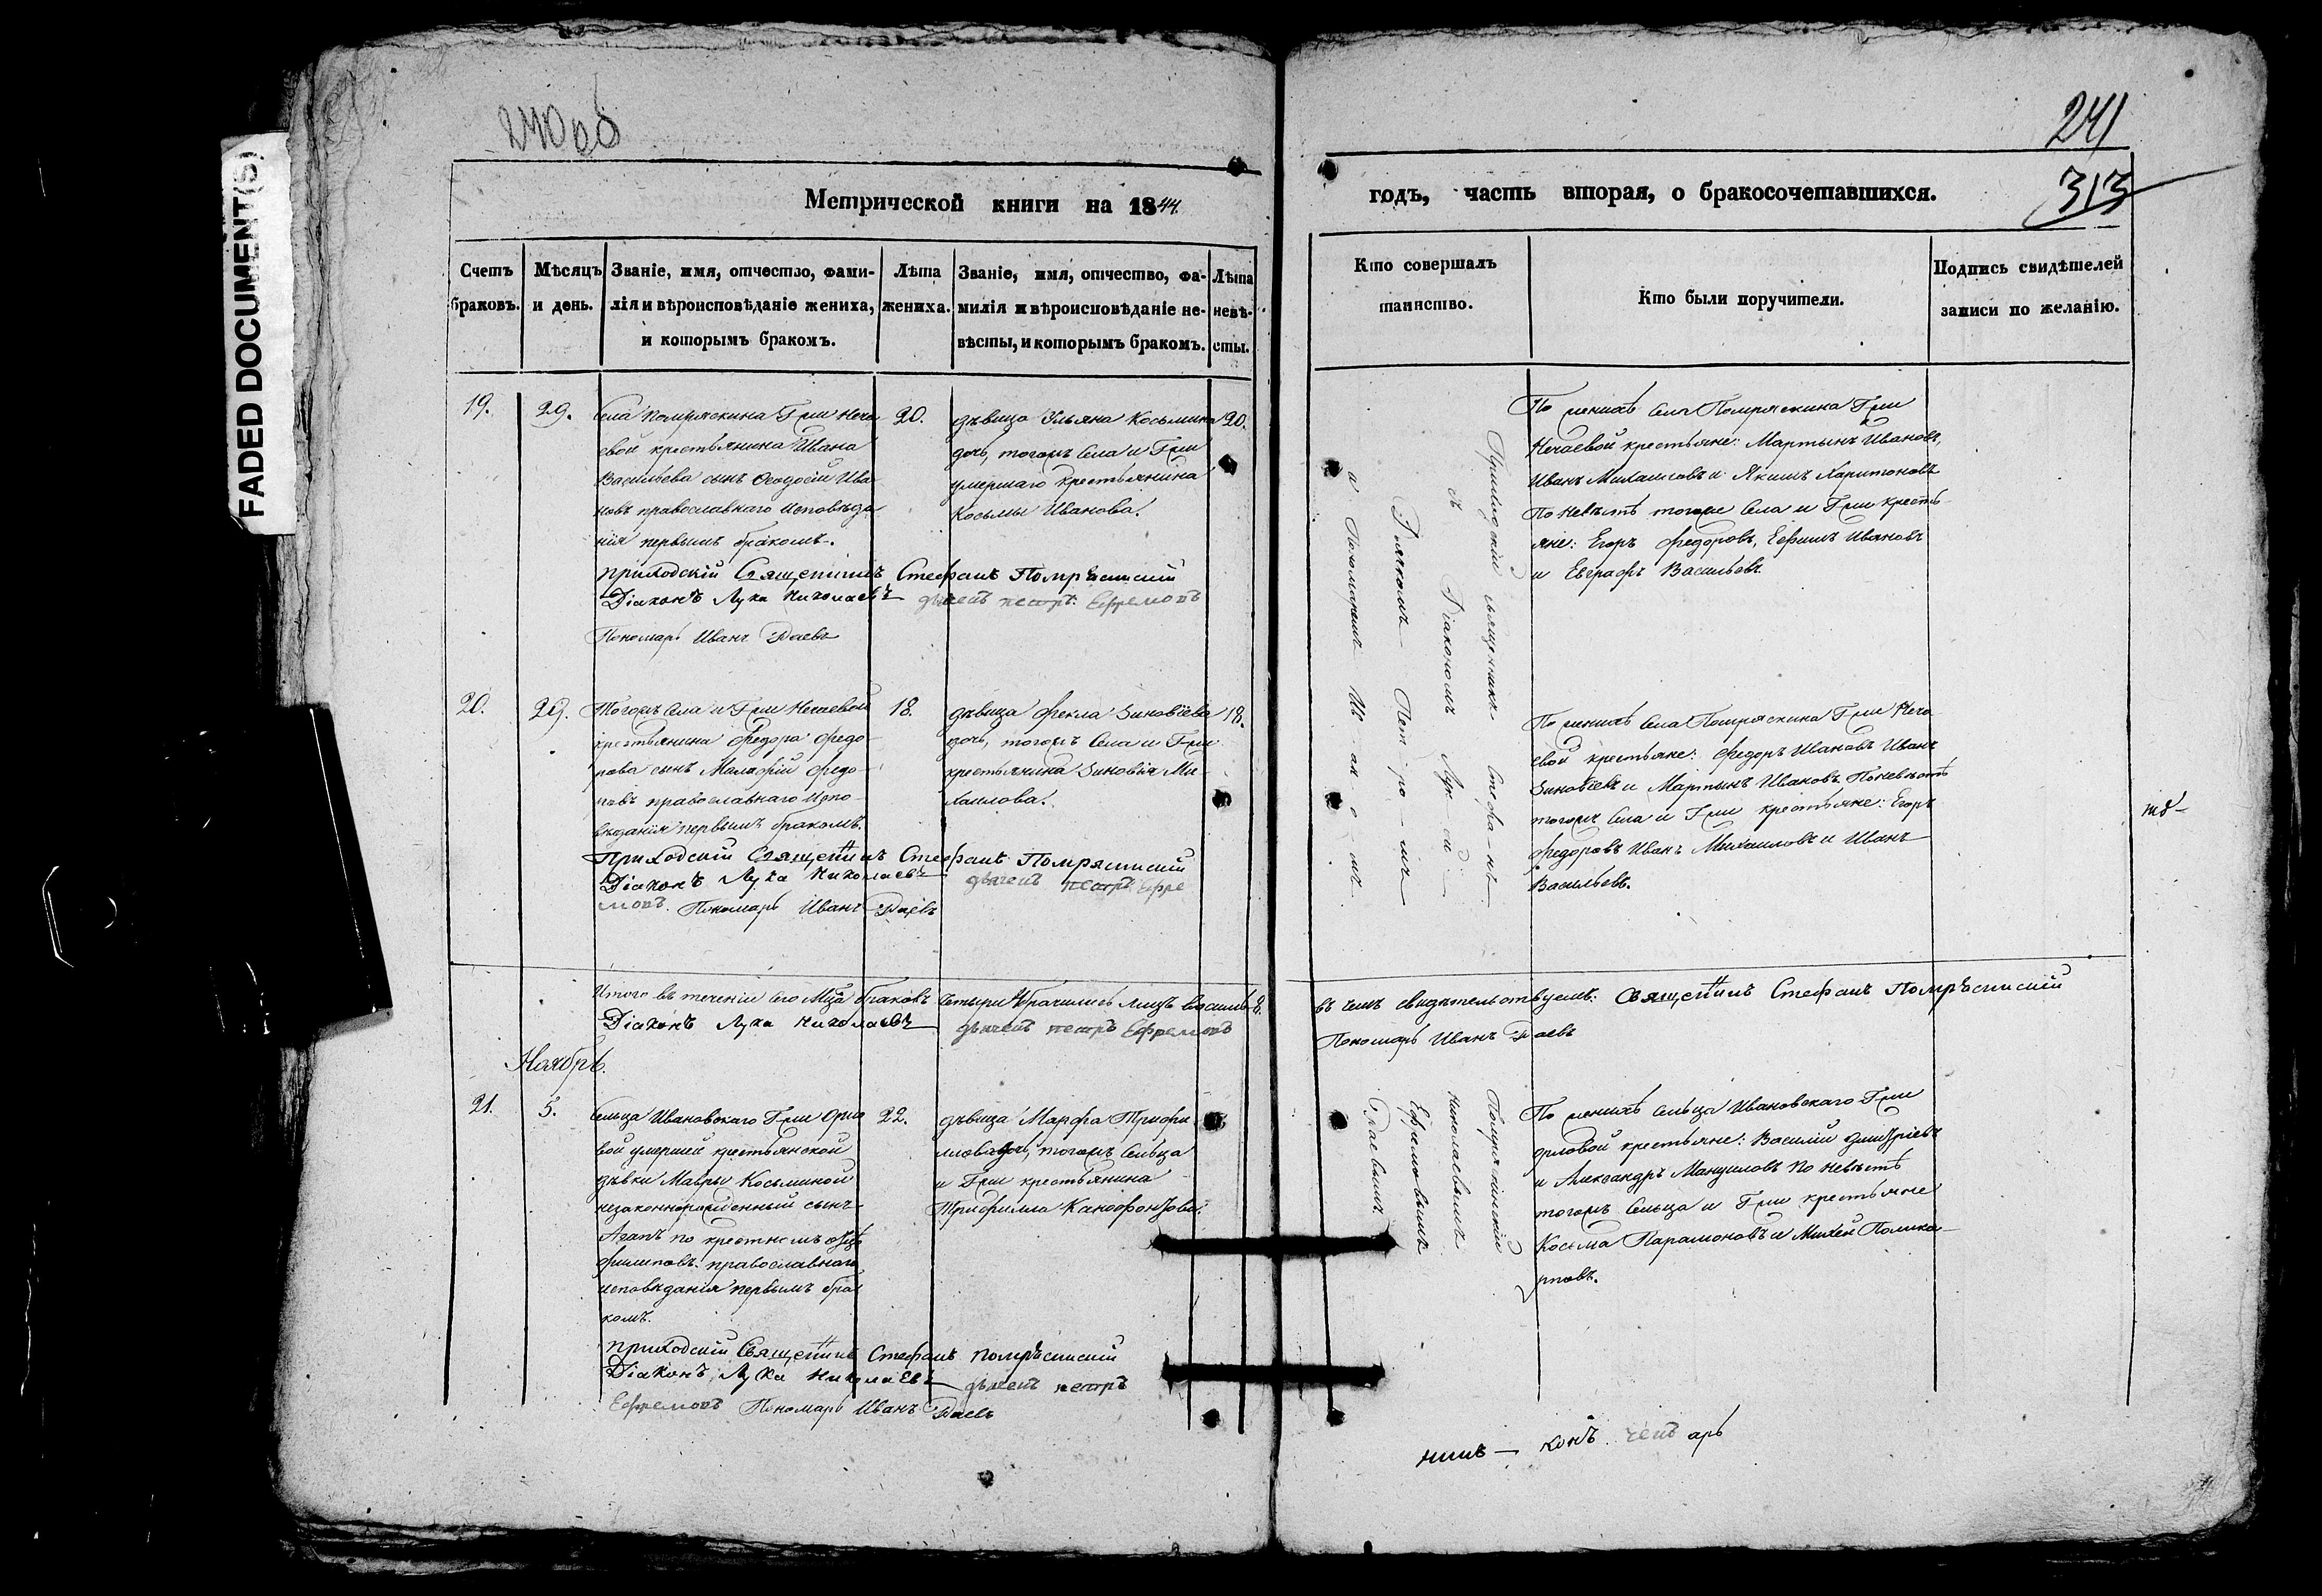 FADED DOCUMENT(S)
240об
241
313
Метрической книги на 1844.
годъ, часть вторая, о бракосочетавшихся.
Счетъ браковъ.
Мѣсяцъ и день.
Званіе, имя, отчество, фами-
лія и вѣроисповѣданіе жениха,
и которымъ бракомъ.
Лѣта
жениха.
Званіе, имя, отчество, фа-
милія и вѣроисповѣданіе не-
вѣсты, и которымъ бракомъ.
Лѣта
невѣ-
сты.
Кто совершалъ
таинство.
Кто были поручители.
Подпись свидѣтелей
записи по желанію.
19.
29.
Села Помряскина Гжи Неча
евой крестьянина Ивана
Васильева сынъ Ѳеодосій Ива
новъ православнаго исповѣда
нія первымъ бракомъ.
20.
дѣвица Ульяна Косьмина
дочь, тогожъ Села и Гжи
умершаго крестьянина
Косьмы Иванова.
20.
По женихѣ Села Помряскина Гжи
Нечаевой крестьяне: Мартынъ Ивановъ,
Иванъ Михаиловъ и Якимъ Харитоновъ
По невѣстѣ тогоже Села и Гжи кресть-
яне: Егоръ Федоровъ, Ефимъ Ивановъ
и Евграфъ Васильевъ.
Приходскій Священникъ Стефанъ Помряскинскій
Діаконъ Лука Николаевъ дьячекъ петръ Ефремовъ
Пономарь Иванъ Раевъ
Приходскій священникъ Стефа-нъ
съ Діакономъ Лу-кой
Дьякомъ Пет-ро-мъ
и Пономаремъ Ив-ан-о-мъ
20.
29.
Тогожъ Села и Гжи Нечаевой
крестьянина Федора Федо-
рова сынъ Малафій Федо-
ровъ православнаго испо-
вѣданія первымъ бракомъ.
18.
дѣвица Фекла Зиновіева
дочь, тогожъ Села и Гжи
крестьянина Зиновія Ми-
хаилова.
18.
По женихѣ Села Помряскина Гжи Неча
евой крестьяне: Федоръ Ивановъ Иванъ
Зиновіевъ и Мартынъ Ивановъ. По невѣстѣ
тогожъ Села и Гжи крестьяне: Егоръ
Федоровъ Иванъ Михаиловъ и Иванъ
Васильевъ.
Приходскій Священникъ Стефанъ Помряскинскій
Діаконъ Лука Николаевъ дьячекъ петръ Ефре
мовъ. Пономарь Иванъ Раевъ
Итого въ теченіи сего Мца браковъ четыри Збрачились лицъ восимь 8.
въ чемъ свидѣтельствуемъ: Священникъ Стефанъ Помряскинскій
Діаконъ Лука Николаевъ дьячекъ петръ Ефремовъ
Пономарь Иванъ Раевъ
Ноябрь.
21.
5.
Сельца Ивановскаго Гжи Орло
вой умершей крестьянской
дѣвки Мавры Косьминой
незаконнорожденный сынъ
Агапъ по крестномъ отцѣ
Филиповъ. православнаго
исповѣданія первымъ бра
комъ.
22.
дѣвица Марфа Трифи
лиева дочь, тогожъ Сельца
и Гжи крестьянина
Трифилиа
Помряскинскій
Николаевымъ
Ефимовымъ
Раевымъ.
По женихѣ Сельца Ивановскаго Гжи
Орловой крестьяне: Василій Дмитріевъ
и Александръ Мануиловъ по невѣстѣ
тогожъ Сельца и Гжи крестьяне
Косьма Парамоновъ и Михей Полика-
рповъ.
Приходскій Священникъ Стефанъ Помряскинскій
Діаконъ, Лука Николаевъ дьячекъ петръ
Ефремовъ Пономарь Иванъ Раевъ
никъ — конъ чекъ арь